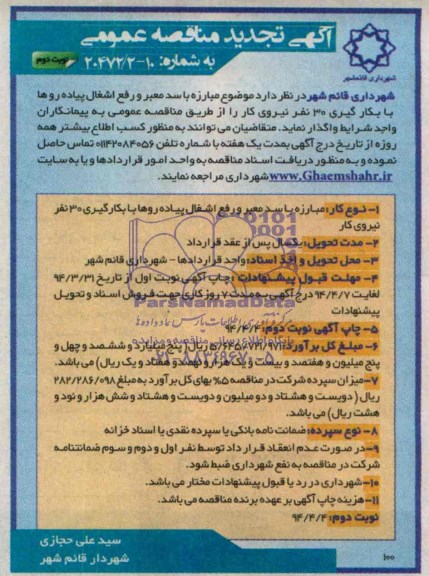 آگهی تجدید مناقصه عمومی
به شماره: ۱۰-۲۰۴۷۲/۲
نوبت دوم
شهرداری قائمشهر
شهرداری قائم شهر در نظر دارد موضوع مبارزه با سد معبر و رفع اشغال پیاده روها
با بکارگیری ۳۰ نفر نیروی کار را از طریق مناقصه عمومی به پیمانکاران
واجد شرایط واگذار نماید. متقاضیان می توانند به منظور کسب اطلاع بیشتر همه
روزه از تاریخ درج آگهی بمدت یک هفته با شماره تلفن ۰۱۱۴۲۰۸۴۰۵۶ تماس حاصل
نموده و به منظور دریافت اسناد مناقصه به واحد امور قراردادها و یا به سایت
www.Ghaemshahr.ir شهرداری مراجعه نمایند.
۱- نوع کار: مبارزه با سد معبر و رفع اشغال پیاده روها با بکارگیری ۳۰ نفر
نیروی کار
۲- مدت تحویل: یکسال پس از عقد قرارداد
۳- محل تحویل و اخذ اسناد: واحد قراردادها - شهرداری قائم شهر
۴- مهلت قبول پیشنهادات: چاپ آگهی نوبت اول از تاریخ ۹۴/۳/۳۱
لغایت ۹۴/۴/۷ درج آگهی به مدت ۷ روز کاری جهت فروش اسناد و تحویل
پیشنهادات
۵- چاپ آگهی نوبت دوم: ۹۴/۴/۴
۶- مبلغ کل برآورد: ۵/۶۴۵/۷۲۱/۹۷۱ ریال (پنج میلیارد و ششصد و چهل و
پنج میلیون و هفتصد و بیست و یک هزار و نهصد و هفتاد و یک ریال) می باشد.
۷- میزان سپرده شرکت در مناقصه ۵% بهای کل برآورد به مبلغ ۲۸۲/۲۸۶/۰۹۸
ریال (دویست و هشتاد و دو میلیون و دویست و هشتاد و شش هزار و نود و
هشت ریال) می باشد.
۸- نوع سپرده: ضمانت نامه بانکی یا سپرده نقدی یا اسناد خزانه
۹- در صورت عدم انعقاد قرارداد توسط نفر اول و دوم و سوم ضمانتنامه
شرکت در مناقصه به نفع شهرداری ضبط شود.
۱۰- شهرداری در رد یا قبول پیشنهادات مختار می باشد.
۱۱- هزینه چاپ آگهی بر عهده برنده مناقصه می باشد.
نوبت دوم: ۹۴/۴/۴
سید علی حجازی
شهردار قائم شهر
۱۰۰
ParsNamadData
پایگاه اطلاع رسانی مناقصه و مزایده